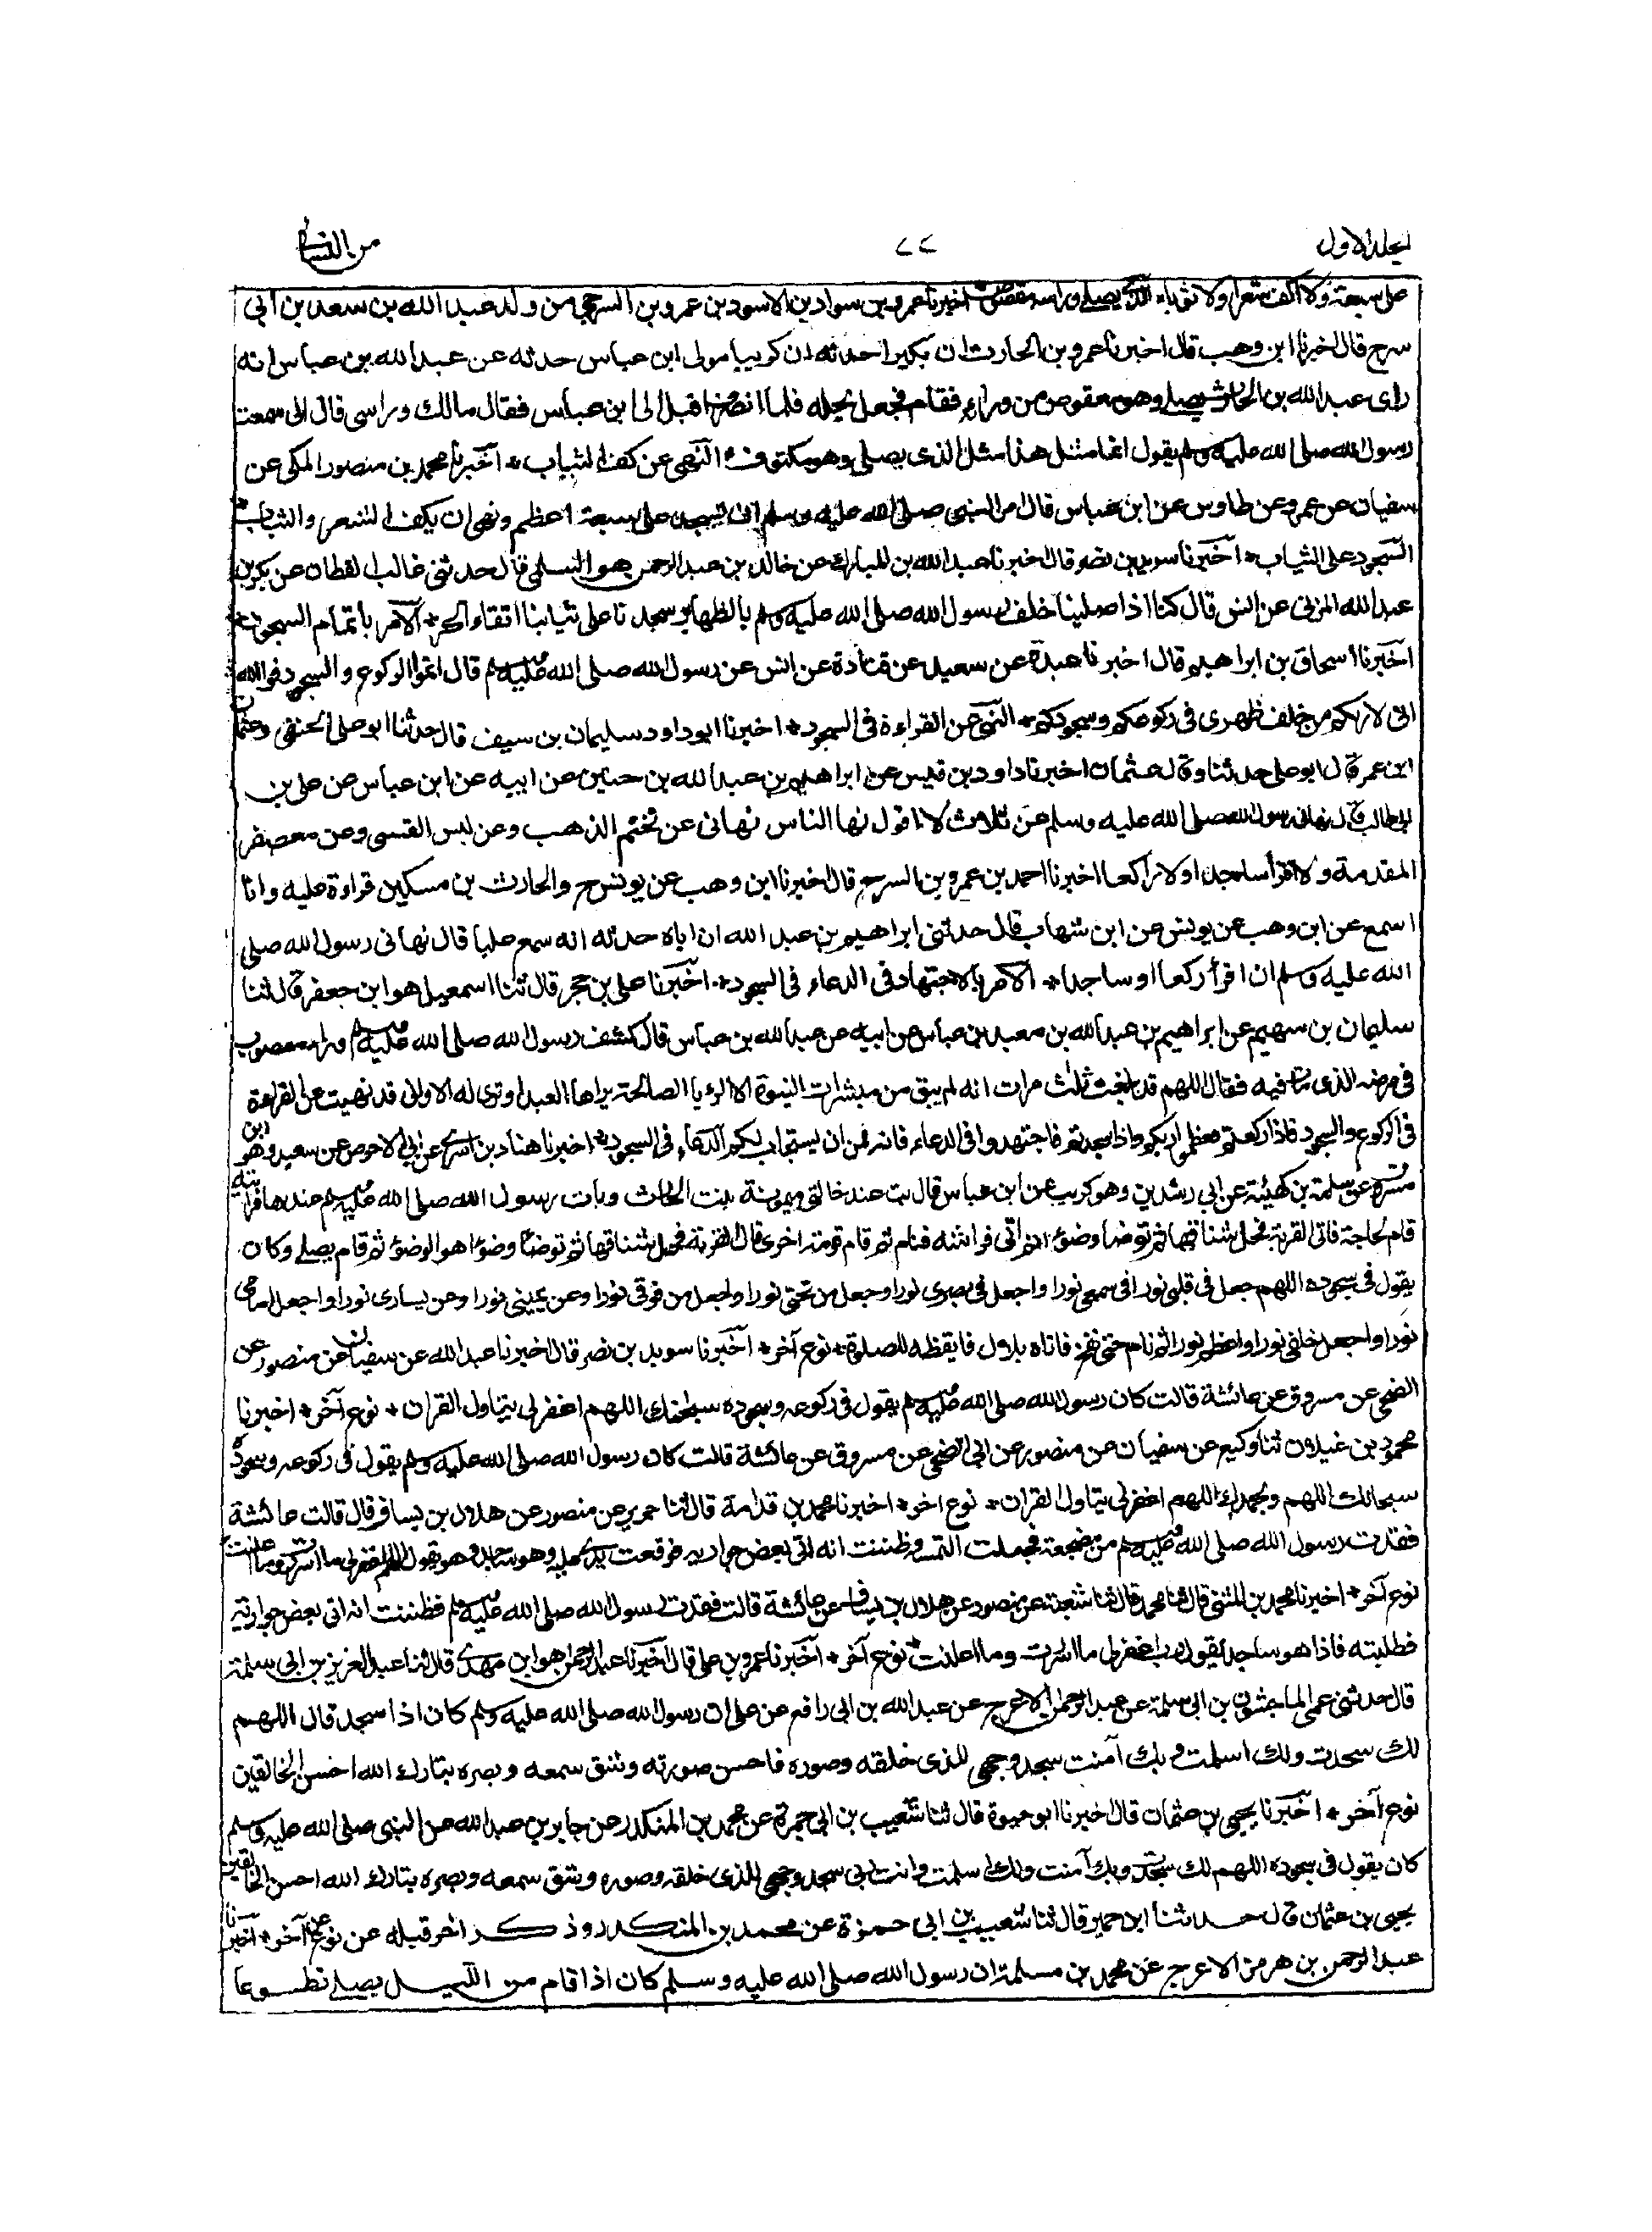 لجلد الاول ٧٤ من النسائی
على سبعة ولا اكف شعرا ولا ثوبا الذی یصلی وراسه معقوص اخبرنا عمرو بن سواد بن الاسود بن عمرو بن السرحی من ولد عبد الله بن سعد بن ابی
سرح قال اخبرنا ابن وهب قال اخبرنا عمرو بن الحارث ان بكیرا حدثه ان كریبا مولی ابن عباس حدثه عن عبد الله بن عباس انه
رای عبد الله بن الحارث یصلی وهو معقوص من وراءه فقام فجعل یحله فلما انصرف اقبل الی ابن عباس فقال مالك وراسی قال انی سمعت
رسول الله صلی الله علیه وسلم یقول انما مثل هذا مثل الذی یصلی وهو مكتوف النهی عن كف الثیاب * اخبرنا محمد بن منصور المكی عن
سفیان عن عمرو عن طاوس عن ابن عباس قال امر النبی صلی الله علیه وسلم ان یسجد علی سبعة اعظم ونهی ان یكف الشعر والثیاب
السجود علی الثیاب * اخبرنا سوید بن نصر قال اخبرنا عبد الله بن المبارك عن خالد بن عبد الرحمن هو السلمی قال حدثنی غالب القطان عن بكر بن
عبد الله المزنی عن انس قال كنا اذا صلینا خلف رسول الله صلی الله علیه وسلم بالظهایر سجدنا علی ثیابنا اتقاء الحر * الامر باتمام السجود *
اخبرنا اسحاق بن ابراهیم قال اخبرنا عبدة عن سعید عن قتادة عن انس عن رسول الله صلی الله علیه وسلم قال اتموا الركوع والسجود فوالله
انی لاراكم من خلف ظهری فی ركوعكم وسجودكم * النهی عن القراءة فی السجود * اخبرنا ابو داود سلیمان بن سیف قال حدثنا ابو علی الحنفی وعثمان
ابن عمر قال ابو علی حدثنا وقال عثمان اخبرنا داود بن قیس عن ابراهیم بن عبد الله بن حنین عن ابیه عن ابن عباس عن علی بن
ابی طالب قال نهانی رسول الله صلی الله علیه وسلم عن ثلاث لا اقول نها الناس نهانی عن تختم الذهب وعن لبس القسی وعن معصفر
المقدمة ولا اقرأ ساجدا ولا راكعا اخبرنا احمد بن عمرو بن السرح قال اخبرنا ابن وهب عن یونس ح والحارث بن مسكین قراءة علیه وانا
اسمع عن ابن وهب عن یونس عن ابن شهاب قال حدثنی ابراهیم بن عبد الله ان اباه حدثه انه سمع علیا قال نهانی رسول الله صلی
الله علیه وسلم ان اقرأ راكعا او ساجدا * الامر بالاجتهاد فی الدعاء فی السجود * اخبرنا علی بن حجر قال ثنا اسمعیل هو ابن جعفر قال ثنا
سلیمان بن سهیم عن ابراهیم بن عبد الله بن معبد بن عباس عن ابیه عن عبد الله بن عباس قال كشف رسول الله صلی الله علیه وسلم وراسه معصوب
فی مرضه الذی مات فیه فقال اللهم قد بلغت ثلث مرات انه لم یبق من مبشرات النبوة الا الرءیا الصالحة یراها العبد او تری له الا وانی قد نهیت عن القراءة
فی الركوع والسجود فاذا ركعتم فعظموا ربكم واذا سجدتم فاجتهدوا فی الدعاء فانه قمن ان یستجاب لكم الدعاء فی السجود * اخبرنا هناد بن السری عن ابی الاحوص عن سعید وهو ابن
مسروق عن سلمة بن كهیل عن ابی رشدین وهو كریب عن ابن عباس قال بت عند خالتی میمونة بنت الحارث وبات رسول الله صلی الله علیه وسلم عندها فرایته
قام لحاجته فاتی القربة فحل شناقها ثم توضا وضوءا ثم اتی فراشه فنام ثم قام قومة اخری فاتی القربة فحل شناقها ثم توضا وضوءا هو الوضوء ثم قام یصلی وكان
یقول فی سجوده اللهم اجعل فی قلبی نورا فی سمعی نورا واجعل فی بصری نورا وجعل من تحتی نورا واجعل من فوقی نورا وعن یمینی نورا وعن یساری نورا واجعل امامی
نورا واجعل خلفی نورا واعظم نورا ثم نام حتی نفخ فاتاه بلال فایقظه للصلوة * نوع آخر * اخبرنا سوید بن نصر قال اخبرنا عبد الله عن سفیان عن منصور عن
الضحی عن مسروق عن عائشة قالت كان رسول الله صلی الله علیه وسلم یقول فی ركوعه وسجوده سبحانك اللهم اغفرلی یتاول القران * نوع آخر * اخبرنا
محمود بن غیلان ثنا وكیع عن سفیان عن منصور عن ابی الضحی عن مسروق عن عائشة قالت كان رسول الله صلی الله علیه وسلم یقول فی ركوعه وسجوده
سبحانك اللهم وبحمدك اللهم اغفرلی یتاول القران * نوع اخر * اخبرنا محمد بن قدامة قال ثنا جریر عن منصور عن هلال بن یساف قال قالت عائشة
فقدت رسول الله صلی الله علیه وسلم من مضجعه فجعلت التمسه وظننت انه اتی بعض جواریه فوقعت یدی علیه وهو ساجد وهو یقول اللهم اغفرلی ما اسررت وما اعلنت
نوع آخر * اخبرنا محمد بن المثنی قال ثنا محمد قال ثنا شعبة عن منصور عن هلال بن یساف عن عائشة قالت فقدت رسول الله صلی الله علیه وسلم فظننت انه اتی بعض جواریه
فطلبته فاذا هو ساجد یقول رب اغفرلی ما اسررت وما اعلنت * نوع آخر * اخبرنا عمرو بن علی قال اخبرنا عبد الرحمن هو ابن مهدی قال ثنا عبد العزیز بن ابی سلمة
قال حدثنی عمی الماجشون بن ابی سلمة عن عبد الرحمن الاعرج عن عبد الله بن ابی رافع عن علی ان رسول الله صلی الله علیه وسلم كان اذا سجد قال اللهم
لك سجدت ولك اسلمت وبك آمنت سجد وجهی للذی خلقه وصوره فاحسن صورته وشق سمعه وبصره تبارك الله احسن الخالقین
نوع آخر * اخبرنا یحیی بن عثمان قال اخبرنا ابو حیوة قال ثنا شعیب بن ابی حمزة عن محمد بن المنكدر عن جابر بن عبد الله عن النبی صلی الله علیه وسلم
كان یقول فی سجوده اللهم لك سجدت وبك آمنت ولك اسلمت وانت ربی سجد وجهی للذی خلقه وصوره وشق سمعه وبصره تبارك الله احسن الخالقین
یحیی بن عثمان قال حدثنا ابن حمیر قال ثنا شعیب بن ابی حمزة عن محمد بن المنكدر وذكر اخر قبله عن نوع آخر * اخبرنا
عبد الرحمن بن هرمز الاعرج عن محمد بن مسلمة ان رسول الله صلی الله علیه وسلم كان اذا قام من اللیل یصلی تطوعا